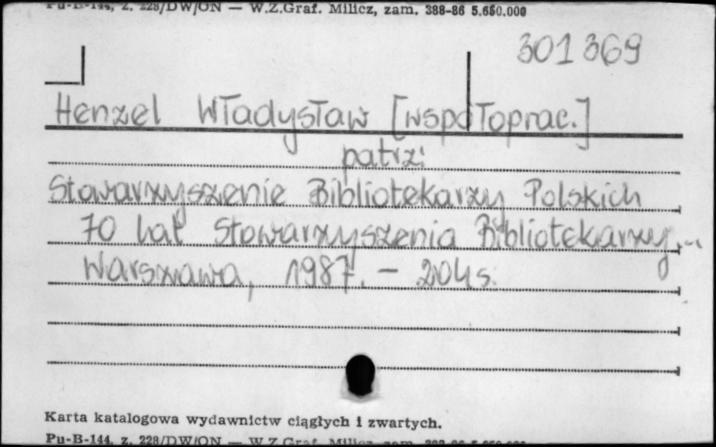 Pu-B-144, z. 228/DW/ON — W.Z.Graf. Milicz, zam. 388-86 5.650.000
301369
Henzel Władysław [współoprac.]
patrz:
Stowarzyszenie Bibliotekarzy Polskich
70 lat Stowarzyszenia Bibliotekarzy...
Warszawa, 1987. - 204 s.
Karta katalogowa wydawnictw ciągłych i zwartych.
Pu-B-144, z. 228/DW/ON — W.Z.Graf. Milicz, zam. 388-86 5.650.000